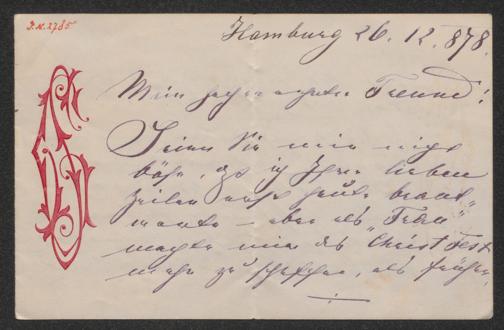 J.N. 2785
Hamburg 26.12.878.
Mein hochverehrter Freund!
Seien Sie mir nicht
böse, daß ich Ihre lieben
Zeilen erst heute beant-
worte – aber als "Frau"
machte mir das Christfest
mehr zu schaffen, als früher.